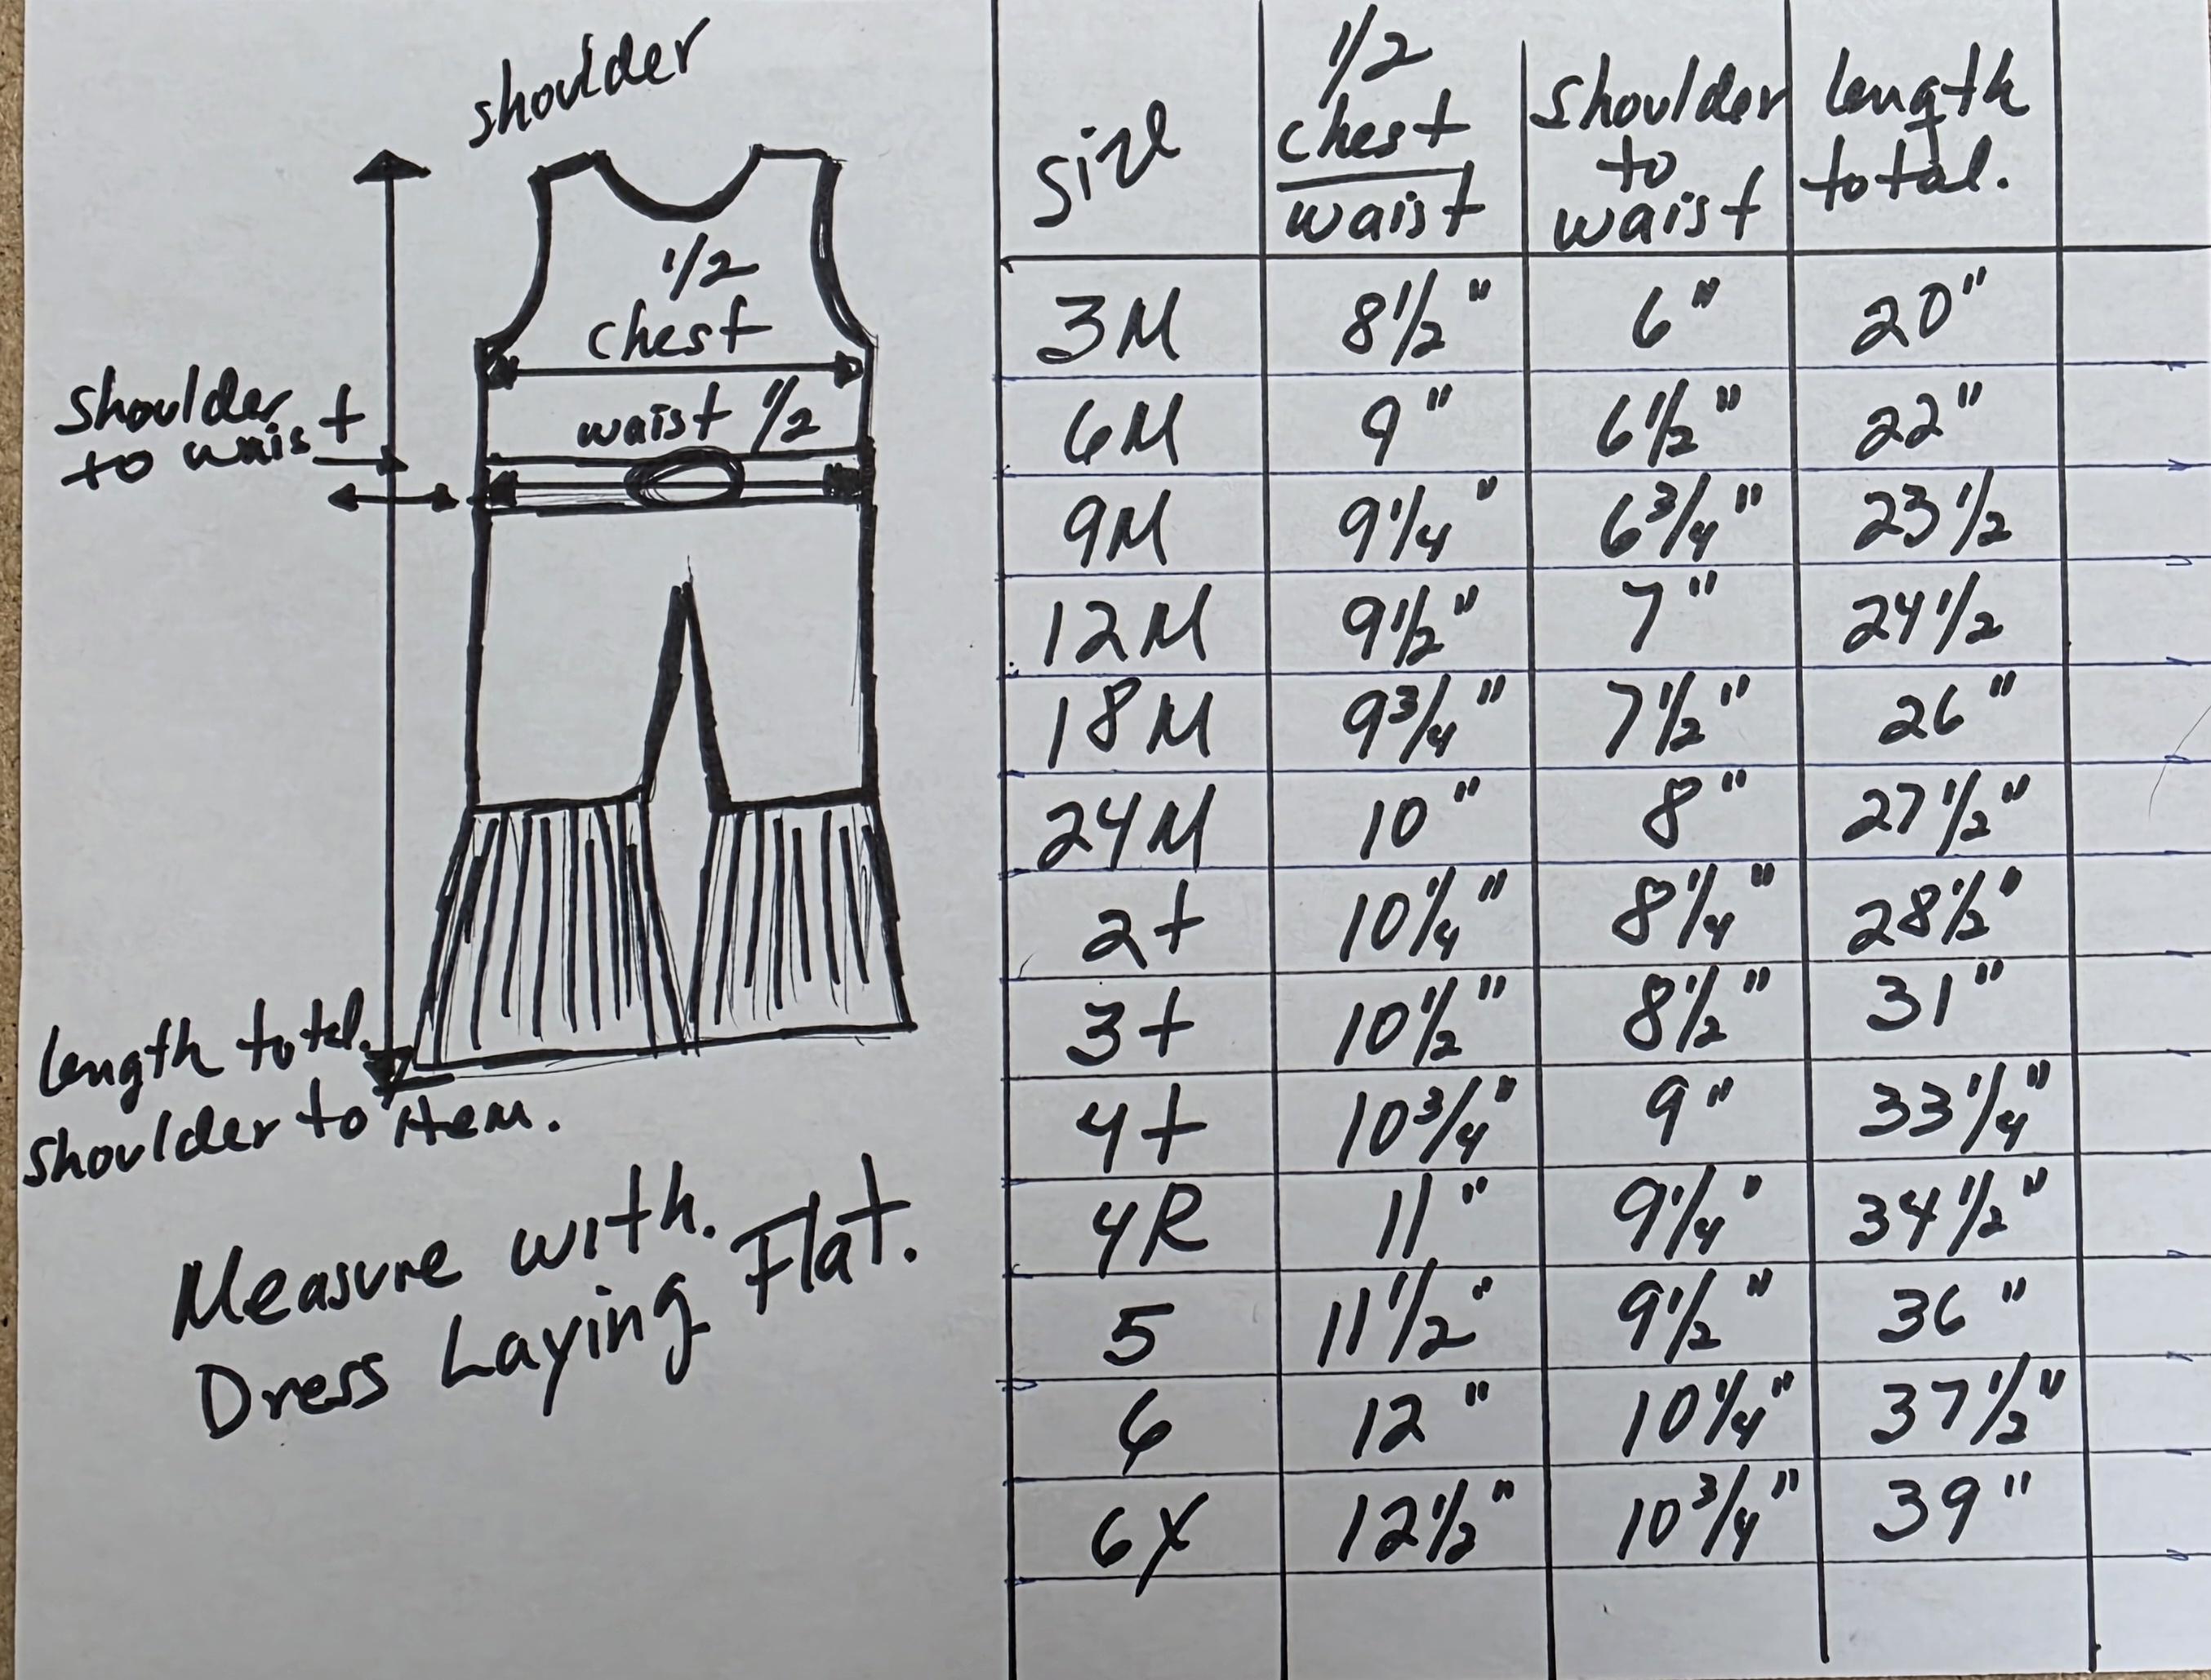 shoulder
1/2
chest
waist 1/2
shoulder
to waist
length total.
shoulder to Hem.
Measure with.
Dress Laying Flat.
size 1/2 chest/waist shoulder to waist length total.
3M 8 1/2" 6" 20"
6M 9" 6 1/2" 22"
9M 9 1/4" 6 3/4" 23 1/2
12M 9 1/2" 7" 24 1/2
18M 9 3/4" 7 1/2" 26"
24M 10" 8" 27 1/2"
2t 10 1/4" 8 1/4" 28 1/2"
3t 10 1/2" 8 1/2" 31"
4t 10 3/4" 9" 33 1/4"
4R 11" 9 1/4" 34 1/2"
5 11 1/2" 9 1/2" 36"
6 12" 10 1/4" 37 1/2"
6X 12 1/2" 10 3/4" 39"